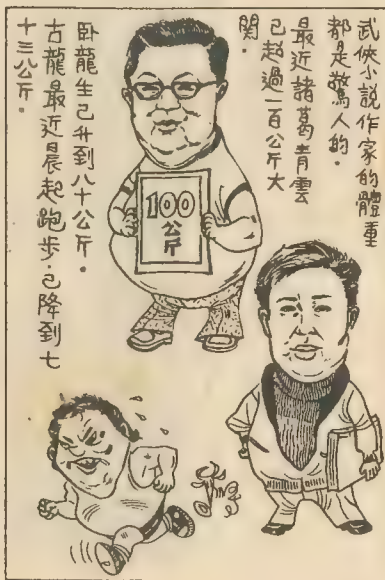 武俠小說作家的體重
都是驚人的．
最近諸葛青雲
已超過一百公斤大
関．
100
公斤
臥龍生已升到八十公斤．
古龍最近晨起跑步．已降到七
十三公斤．